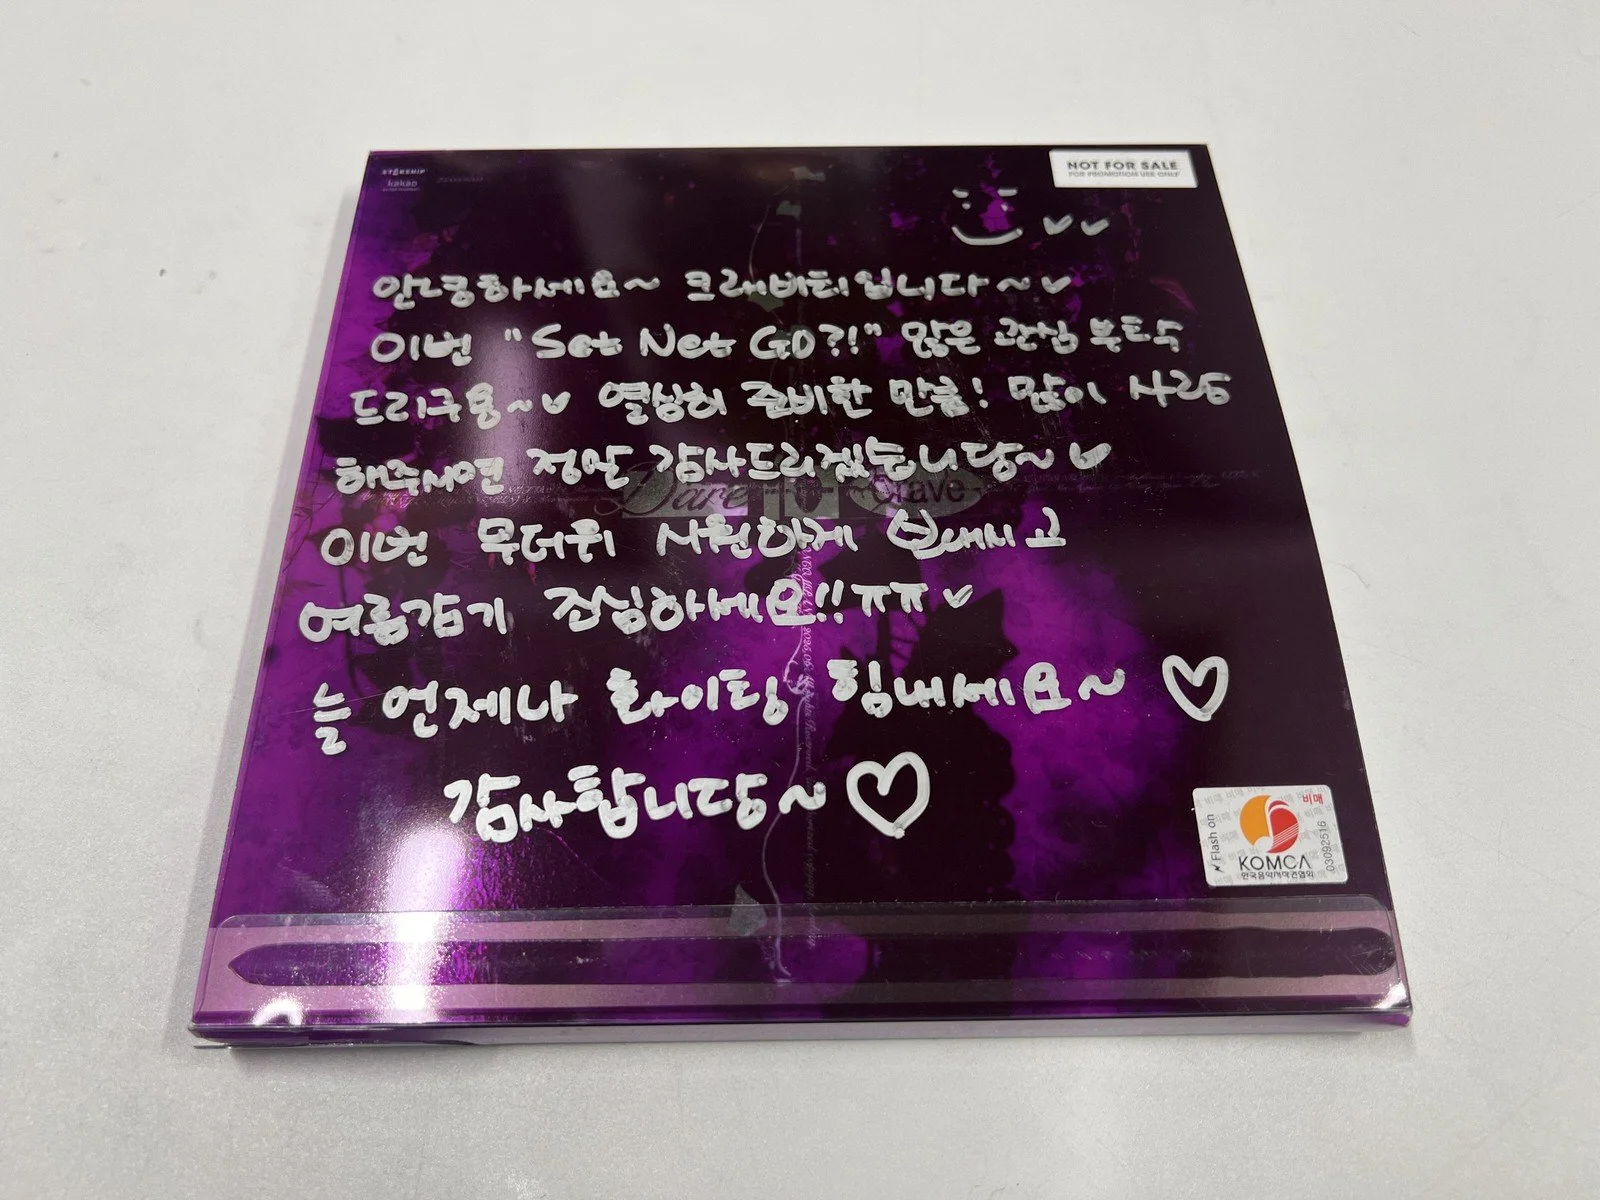 STARSHIP
kakao
NOT FOR SALE
FOR PROMOTION USE ONLY
안녕하세요~ 크래비티입니다~
이번 "Set Net GO?!" 많은 관심 부탁
드리구용~ 열심히 준비한 만큼! 많이 사랑
해주시면 정말 감사드리겠습니당~
Dare to Crave
이번 무더위 시원하게 보내시고
여름감기 조심하세요!! ㅠㅠ
늘 언제나 화이팅 힘내세요~ ♡
감사합니당~ ♡
Flash on
비매
KOMCA
한국음악저작권협회
03092516